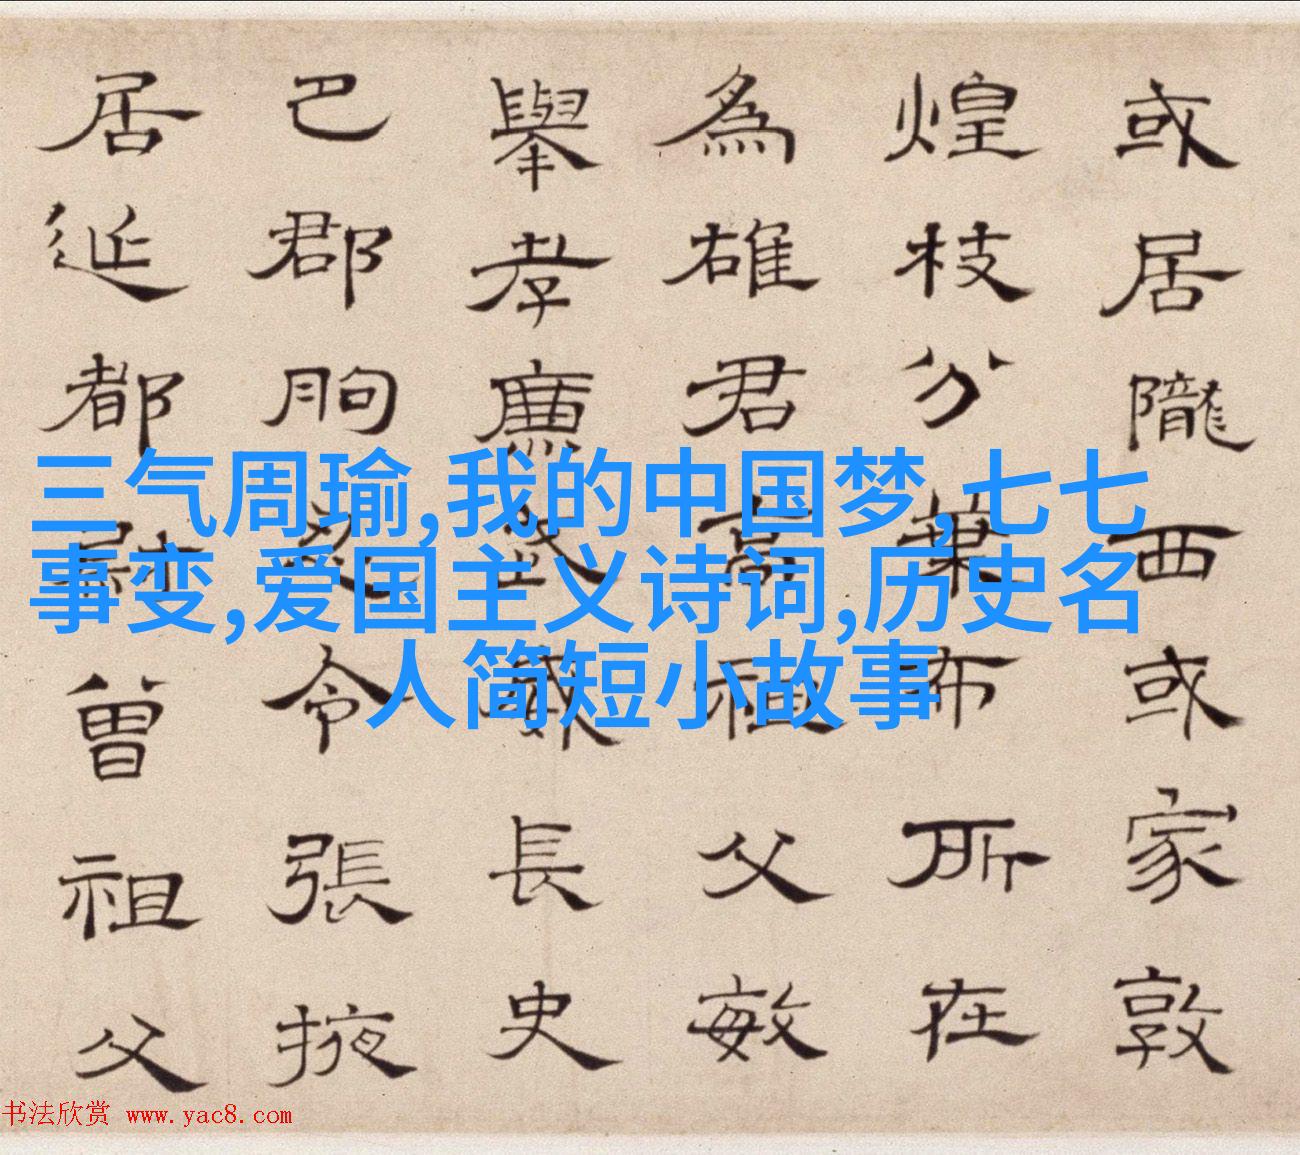 或居隴西或家敦
煌枝分葉布所在
為雄君高祖父敏
舉孝廉武威長史
巴郡朐忍令張掖
居延都尉曾祖父
三气周瑜,我的中国梦,七七
事变,爱国主义诗词,历史名
人简短小故事
书法欣赏 www.yac8.com